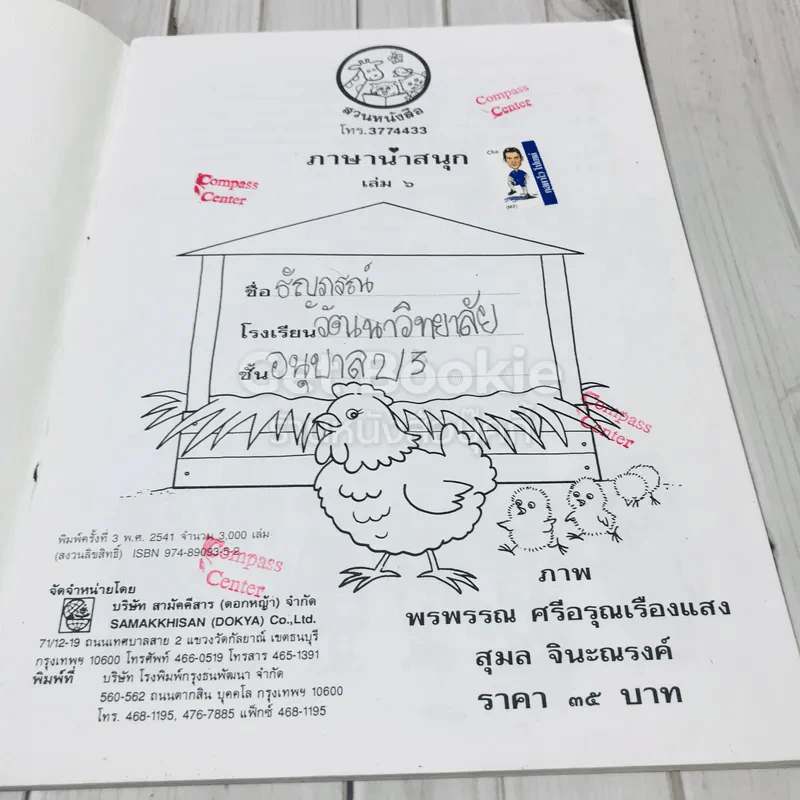 สวนหนังสือ
โทร.3774433
Compass
Center
ภาษาน่าสนุก
เล่ม ๖
Compass
Center
ชื่อ ธัญภรณ์
โรงเรียน วัฒนาวิทยาลัย
ชั้น อนุบาล 2/3
GetBookie
Compass
Center
พิมพ์ครั้งที่ 3 พ.ศ. 2541 จำนวน 3,000 เล่ม
(สงวนลิขสิทธิ์) ISBN 974-89093-5-2
Compass
Center
จัดจำหน่ายโดย
บริษัท สามัคคีสาร (ดอกหญ้า) จำกัด
SAMAKKHISAN (DOKYA) Co.,Ltd.
71/12-19 ถนนเทศบาลสาย 2 แขวงวัดกัลยาณ์ เขตธนบุรี
กรุงเทพฯ 10600 โทรศัพท์ 466-0519 โทรสาร 465-1391
พิมพ์ที่ บริษัท โรงพิมพ์กรุงธนพัฒนา จำกัด
560-562 ถนนตากสิน บุคคโล กรุงเทพฯ 10600
โทร. 468-1195, 476-7885 แฟ็กซ์ 468-1195
ภาพ
พรพรรณ ศรีอรุณเรืองแสง
สุมล จินะณรงค์
ราคา ๓๕ บาท